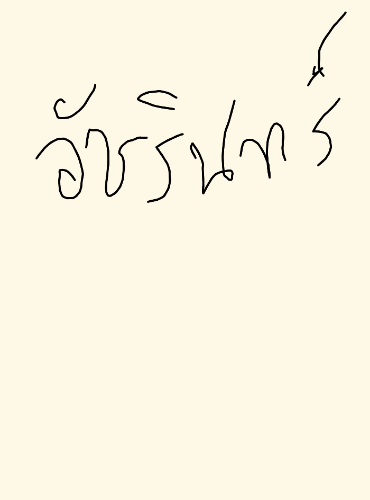 อัชรินทร์